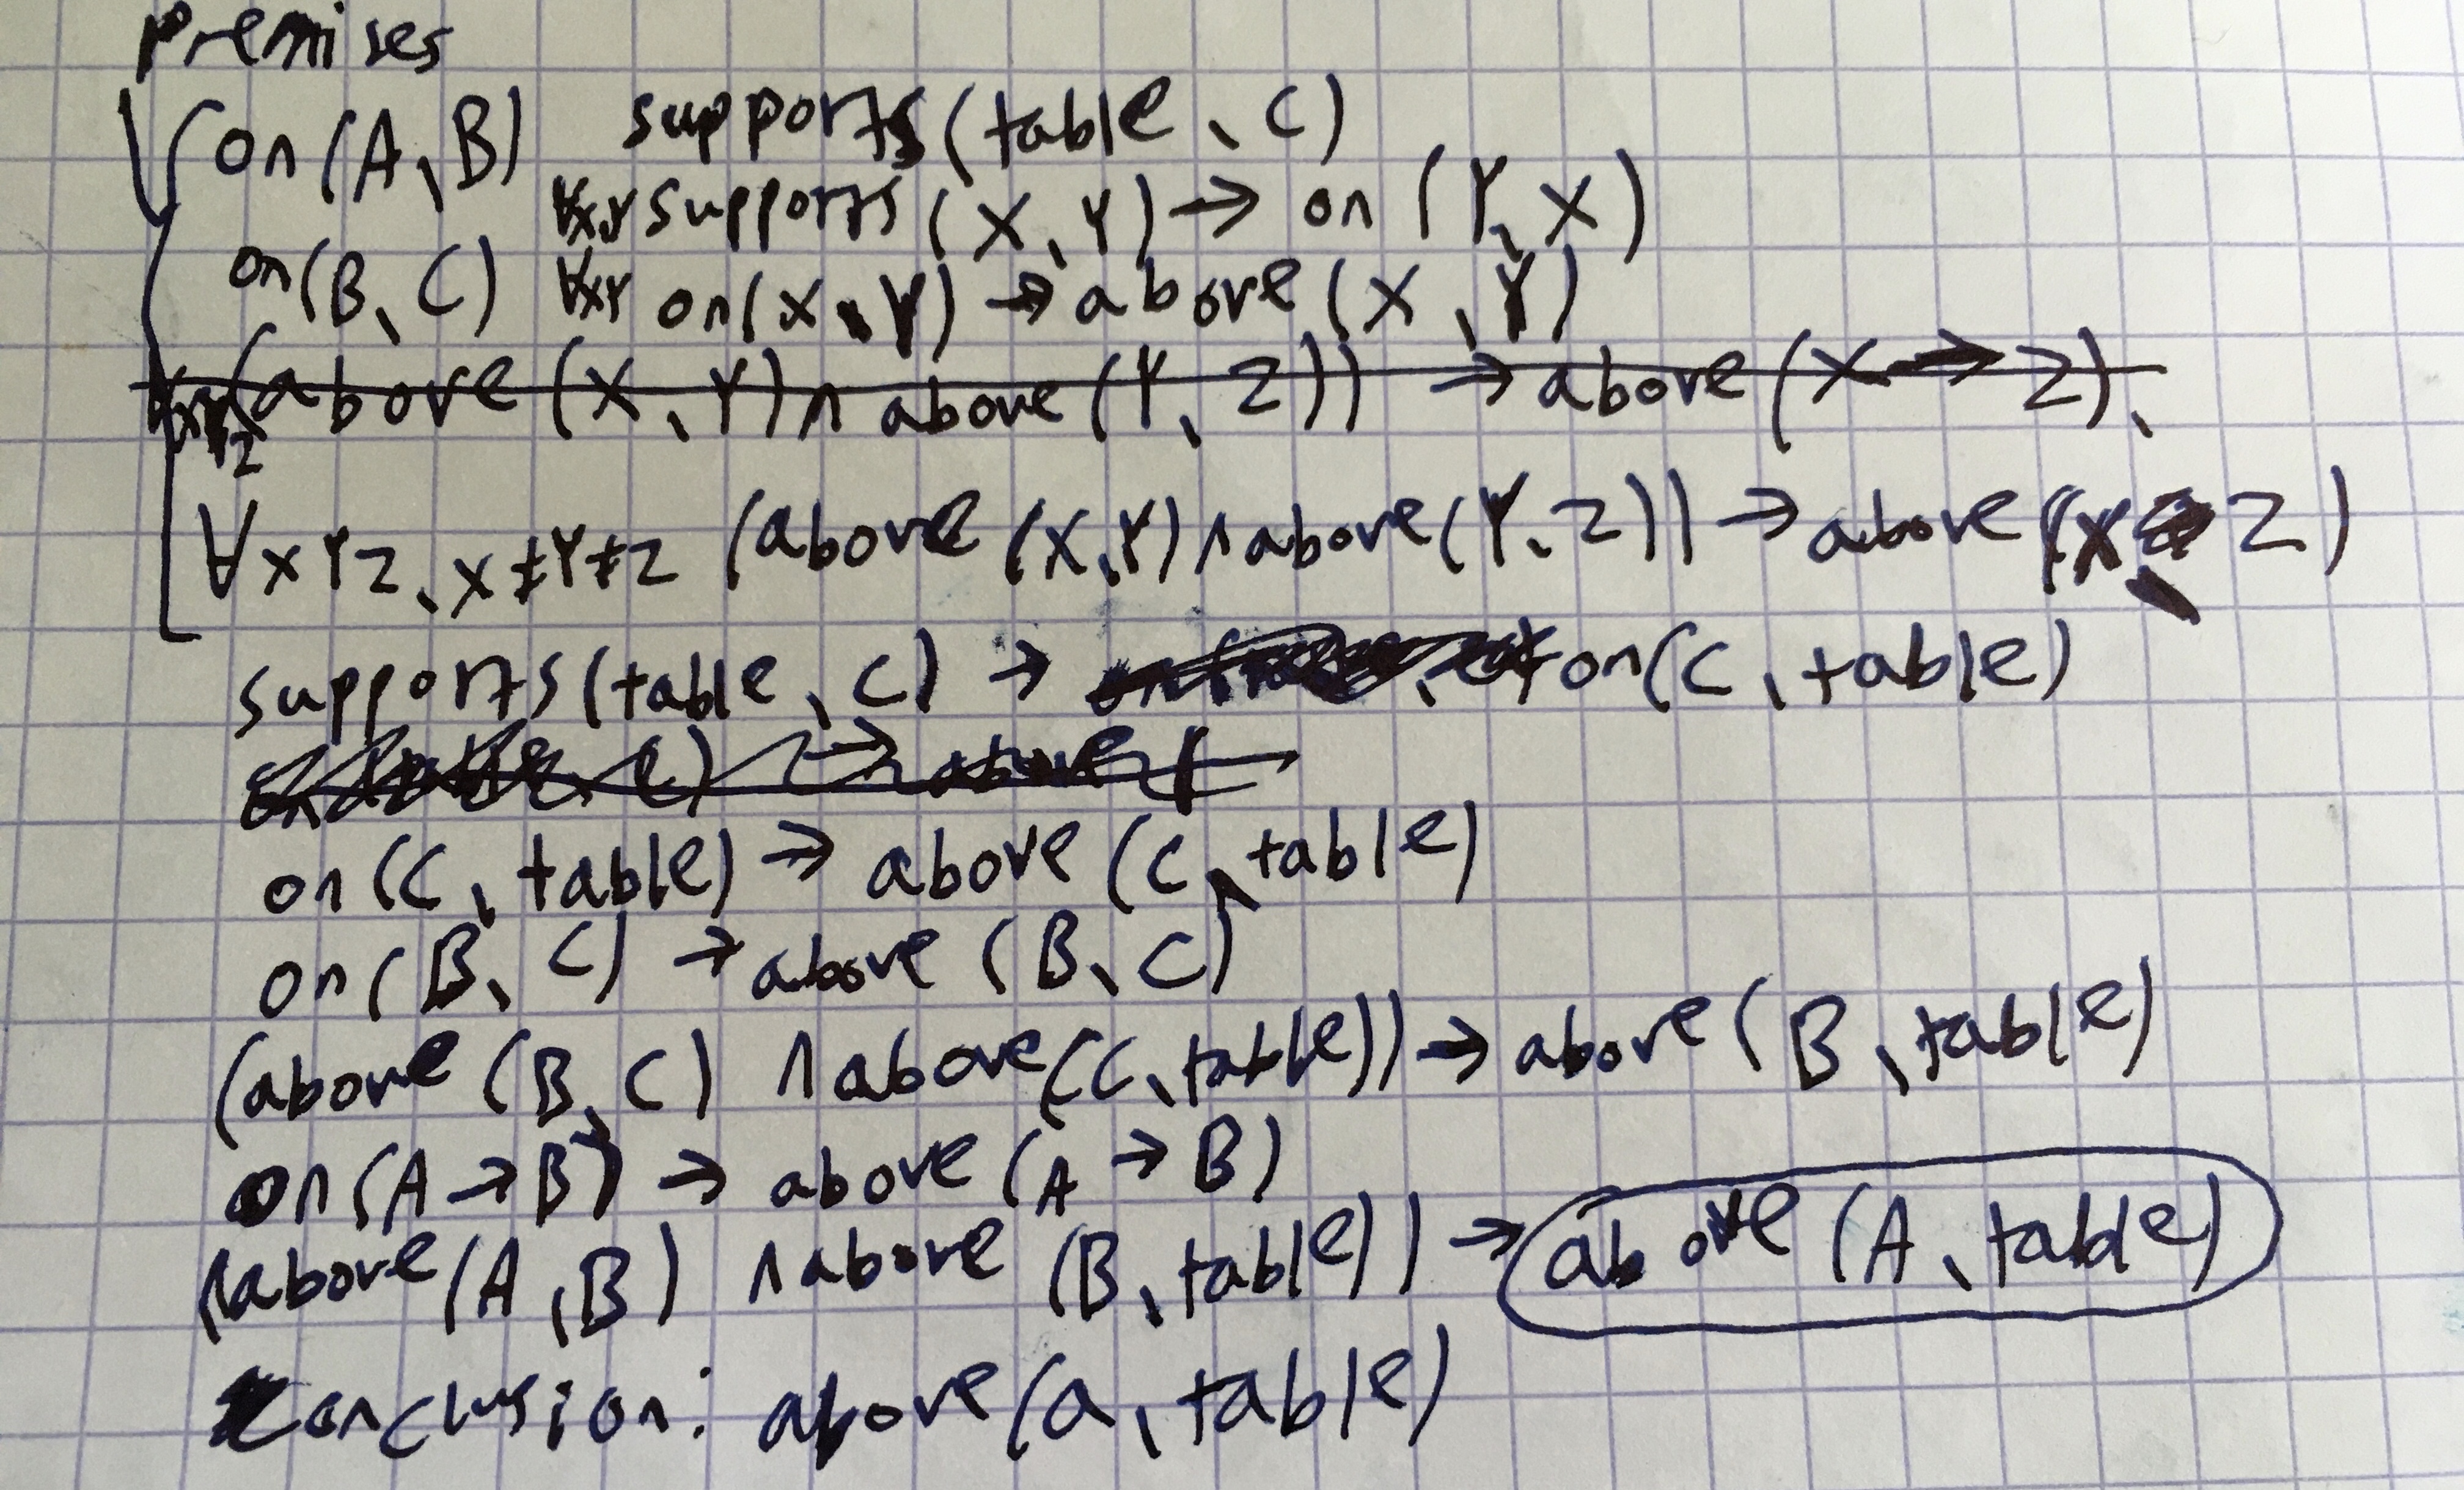 Premises
on(A,B) supports(table,C)
∀x,Y supports(X,Y) → on(Y,X)
on(B,C) ∀xY on(X,Y) → above(X,Y)
∀xYz (above(X,Y) ∧ above(Y,Z)) → above(X → Z),
∀XYZ,X≠Y≠Z (above(X,Y) ∧ above(Y,Z)) → above(X, Z)
supports(table,C) → on(C,table)
→ above(
on(C,table) → above(C,table)
on(B,C) → above(B,C)
(above(B,C) ∧ above(C,table)) → above(B,table)
on(A → B) → above(A → B)
(above(A,B) ∧ above(B,table)) → above(A,table)
Conclusion: above(a,table)